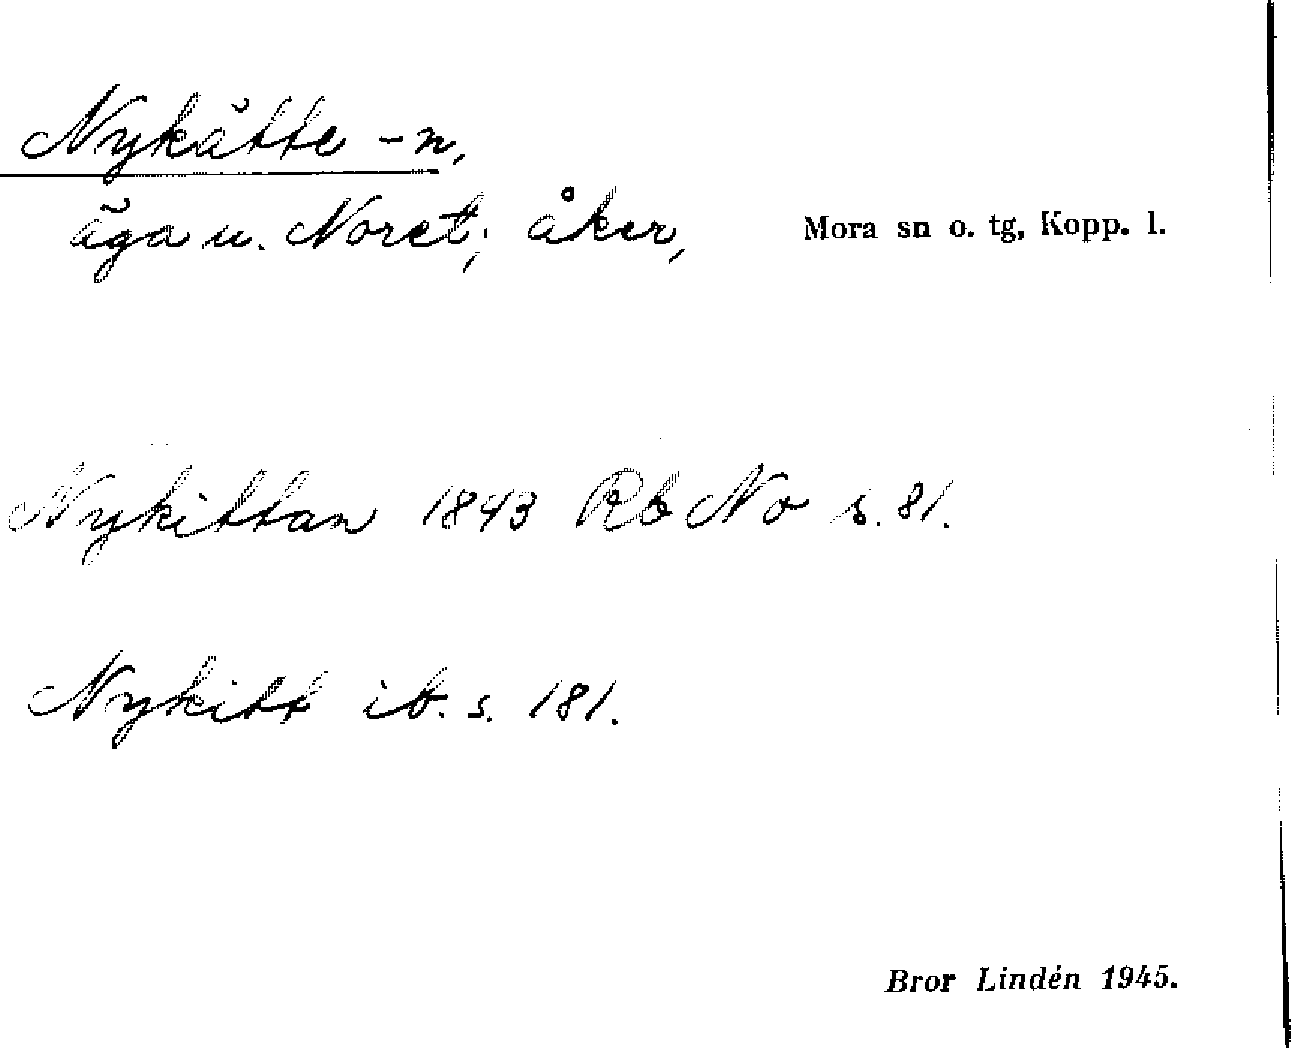 Nykätte -n,
äga u. Noret; åker, Mora sn o. tg, Kopp. l.
Nykittan 1843 Rb No s. 81.
Nykitt ib. s. 181.
Bror Lindén 1945.